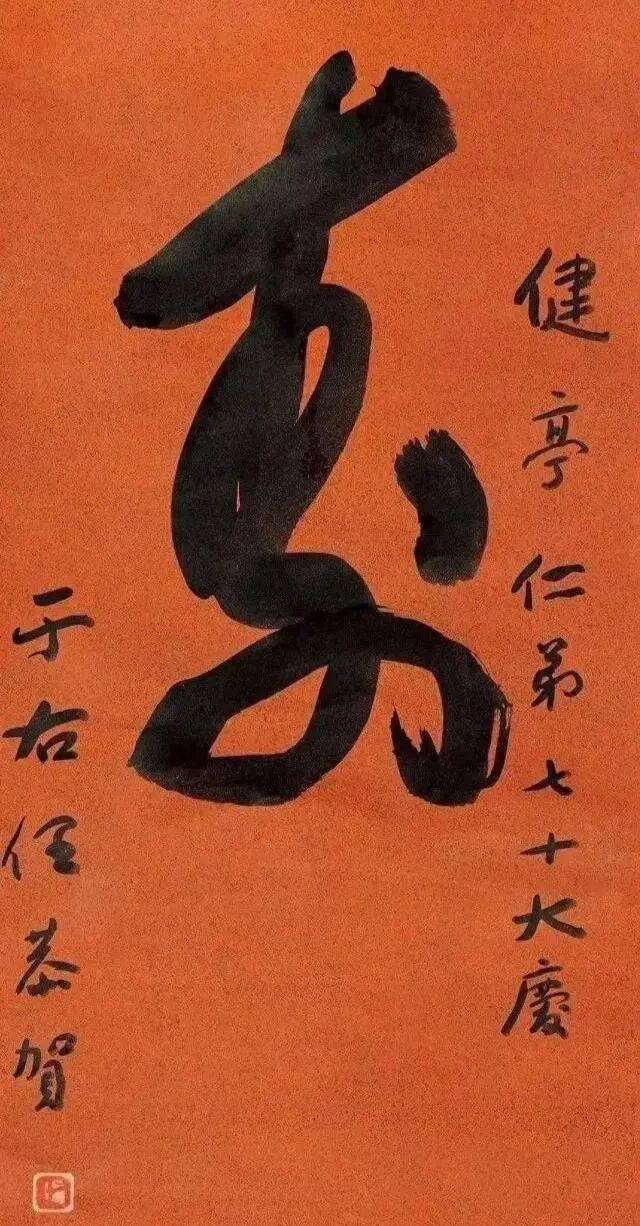 健亭仁弟七十大慶
壽
于右任恭賀